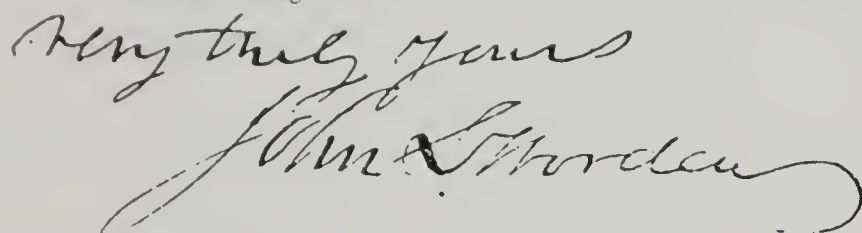 Very truly yours
John L Worden